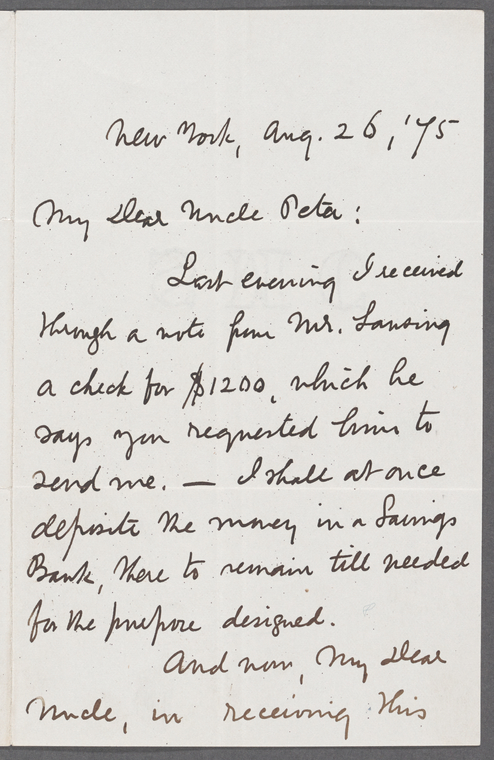 New York, Aug. 26, '75
My Dear Uncle Peter:
Last evening I received
through a note from Mr. Lansing
a check for $1200, which he
says you requested him to
send me. — I shall at once
deposite the money in a Savings
Bank, there to remain till needed
for the purpose designed.
And now, My Dear
Uncle, in receiving this